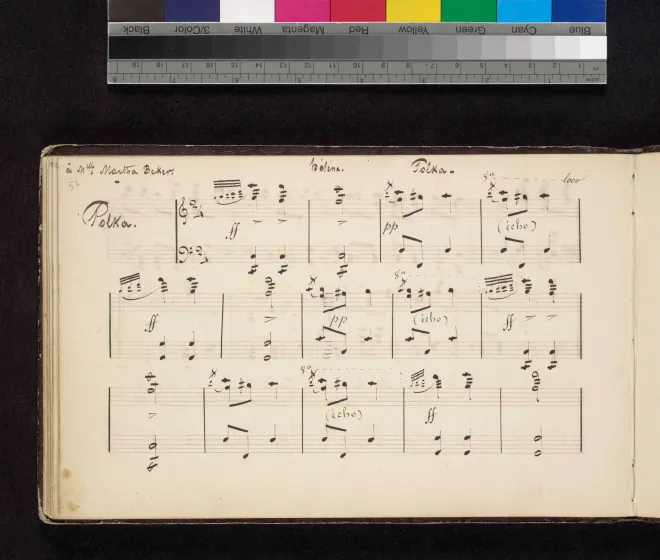 Blue Cyan Green Yellow Red Magenta White 3/Color Black
à Mlle Martha Beker. Polka.
52
8a loco
Polka.
ff pp (écho)
8a
ff pp (écho) ff
8a
(écho) ff